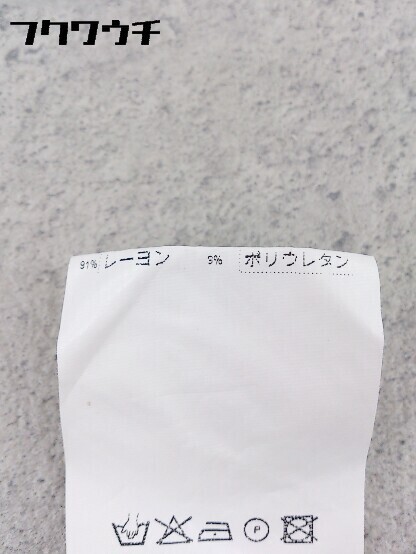 フクワウチ
91% レーヨン 9% ポリウレタン
P